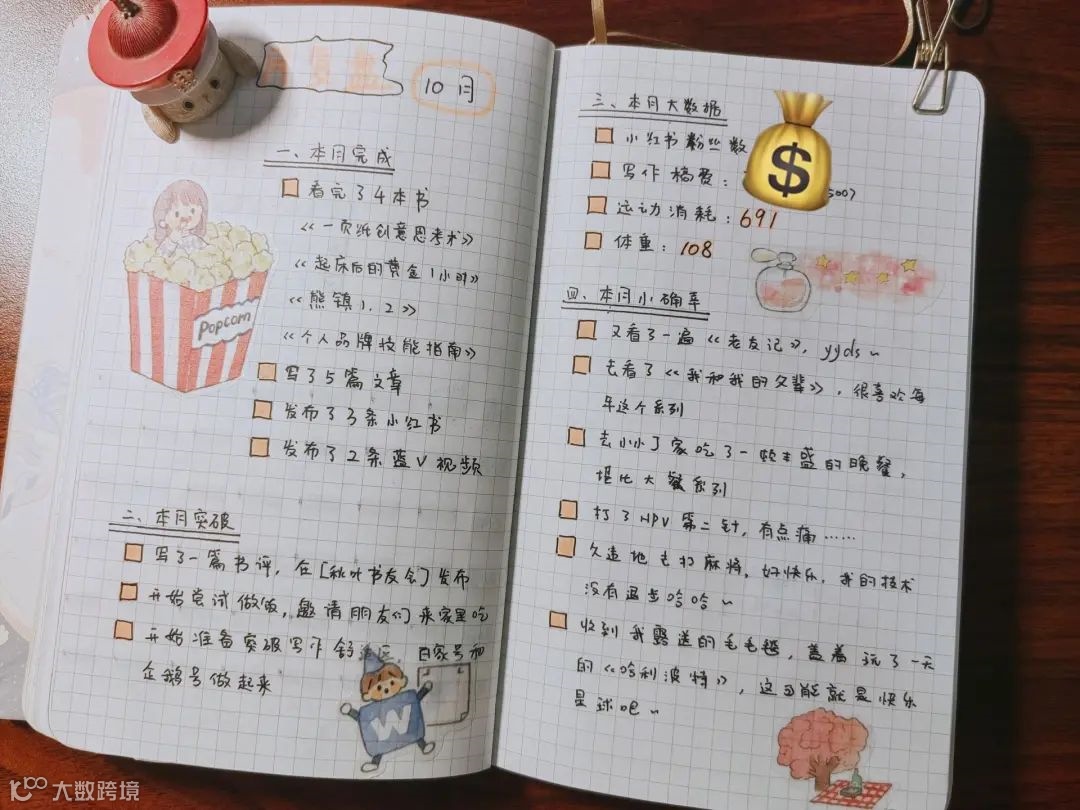 月复盘
10月
一、本月完成
看完了4本书
《一页纸创意思考术》
《起床后的黄金1小时》
《熊镇1.2》
《个人品牌技能指南》
Popcorn
写了5篇文章
发布了3条小红书
发布了2条蓝V视频
二、本月突破
写了一篇书评,在[秋叶书友会]发布
开始尝试做饭,邀请朋友们来家里吃
开始准备突破写作舒适区,百家号和
企鹅号做起来
W
三、本月大数据
小红书粉丝数
写作稿费:
$
运动消耗:691
体重:108
四、本月小确幸
又看了一遍《老友记》,yyds~
去看了《我和我的父辈》,很喜欢每
年这个系列
去小小丁家吃了一顿丰盛的晚餐,
堪比大餐系列
打了HPV第二针,有点痛……
久违地去打麻将,好快乐,我的技术
没有退步哈哈~
收到我露送的毛毛毯,盖着玩了一天
的《哈利波特》,这可能就是快乐
星球吧~
大数跨境